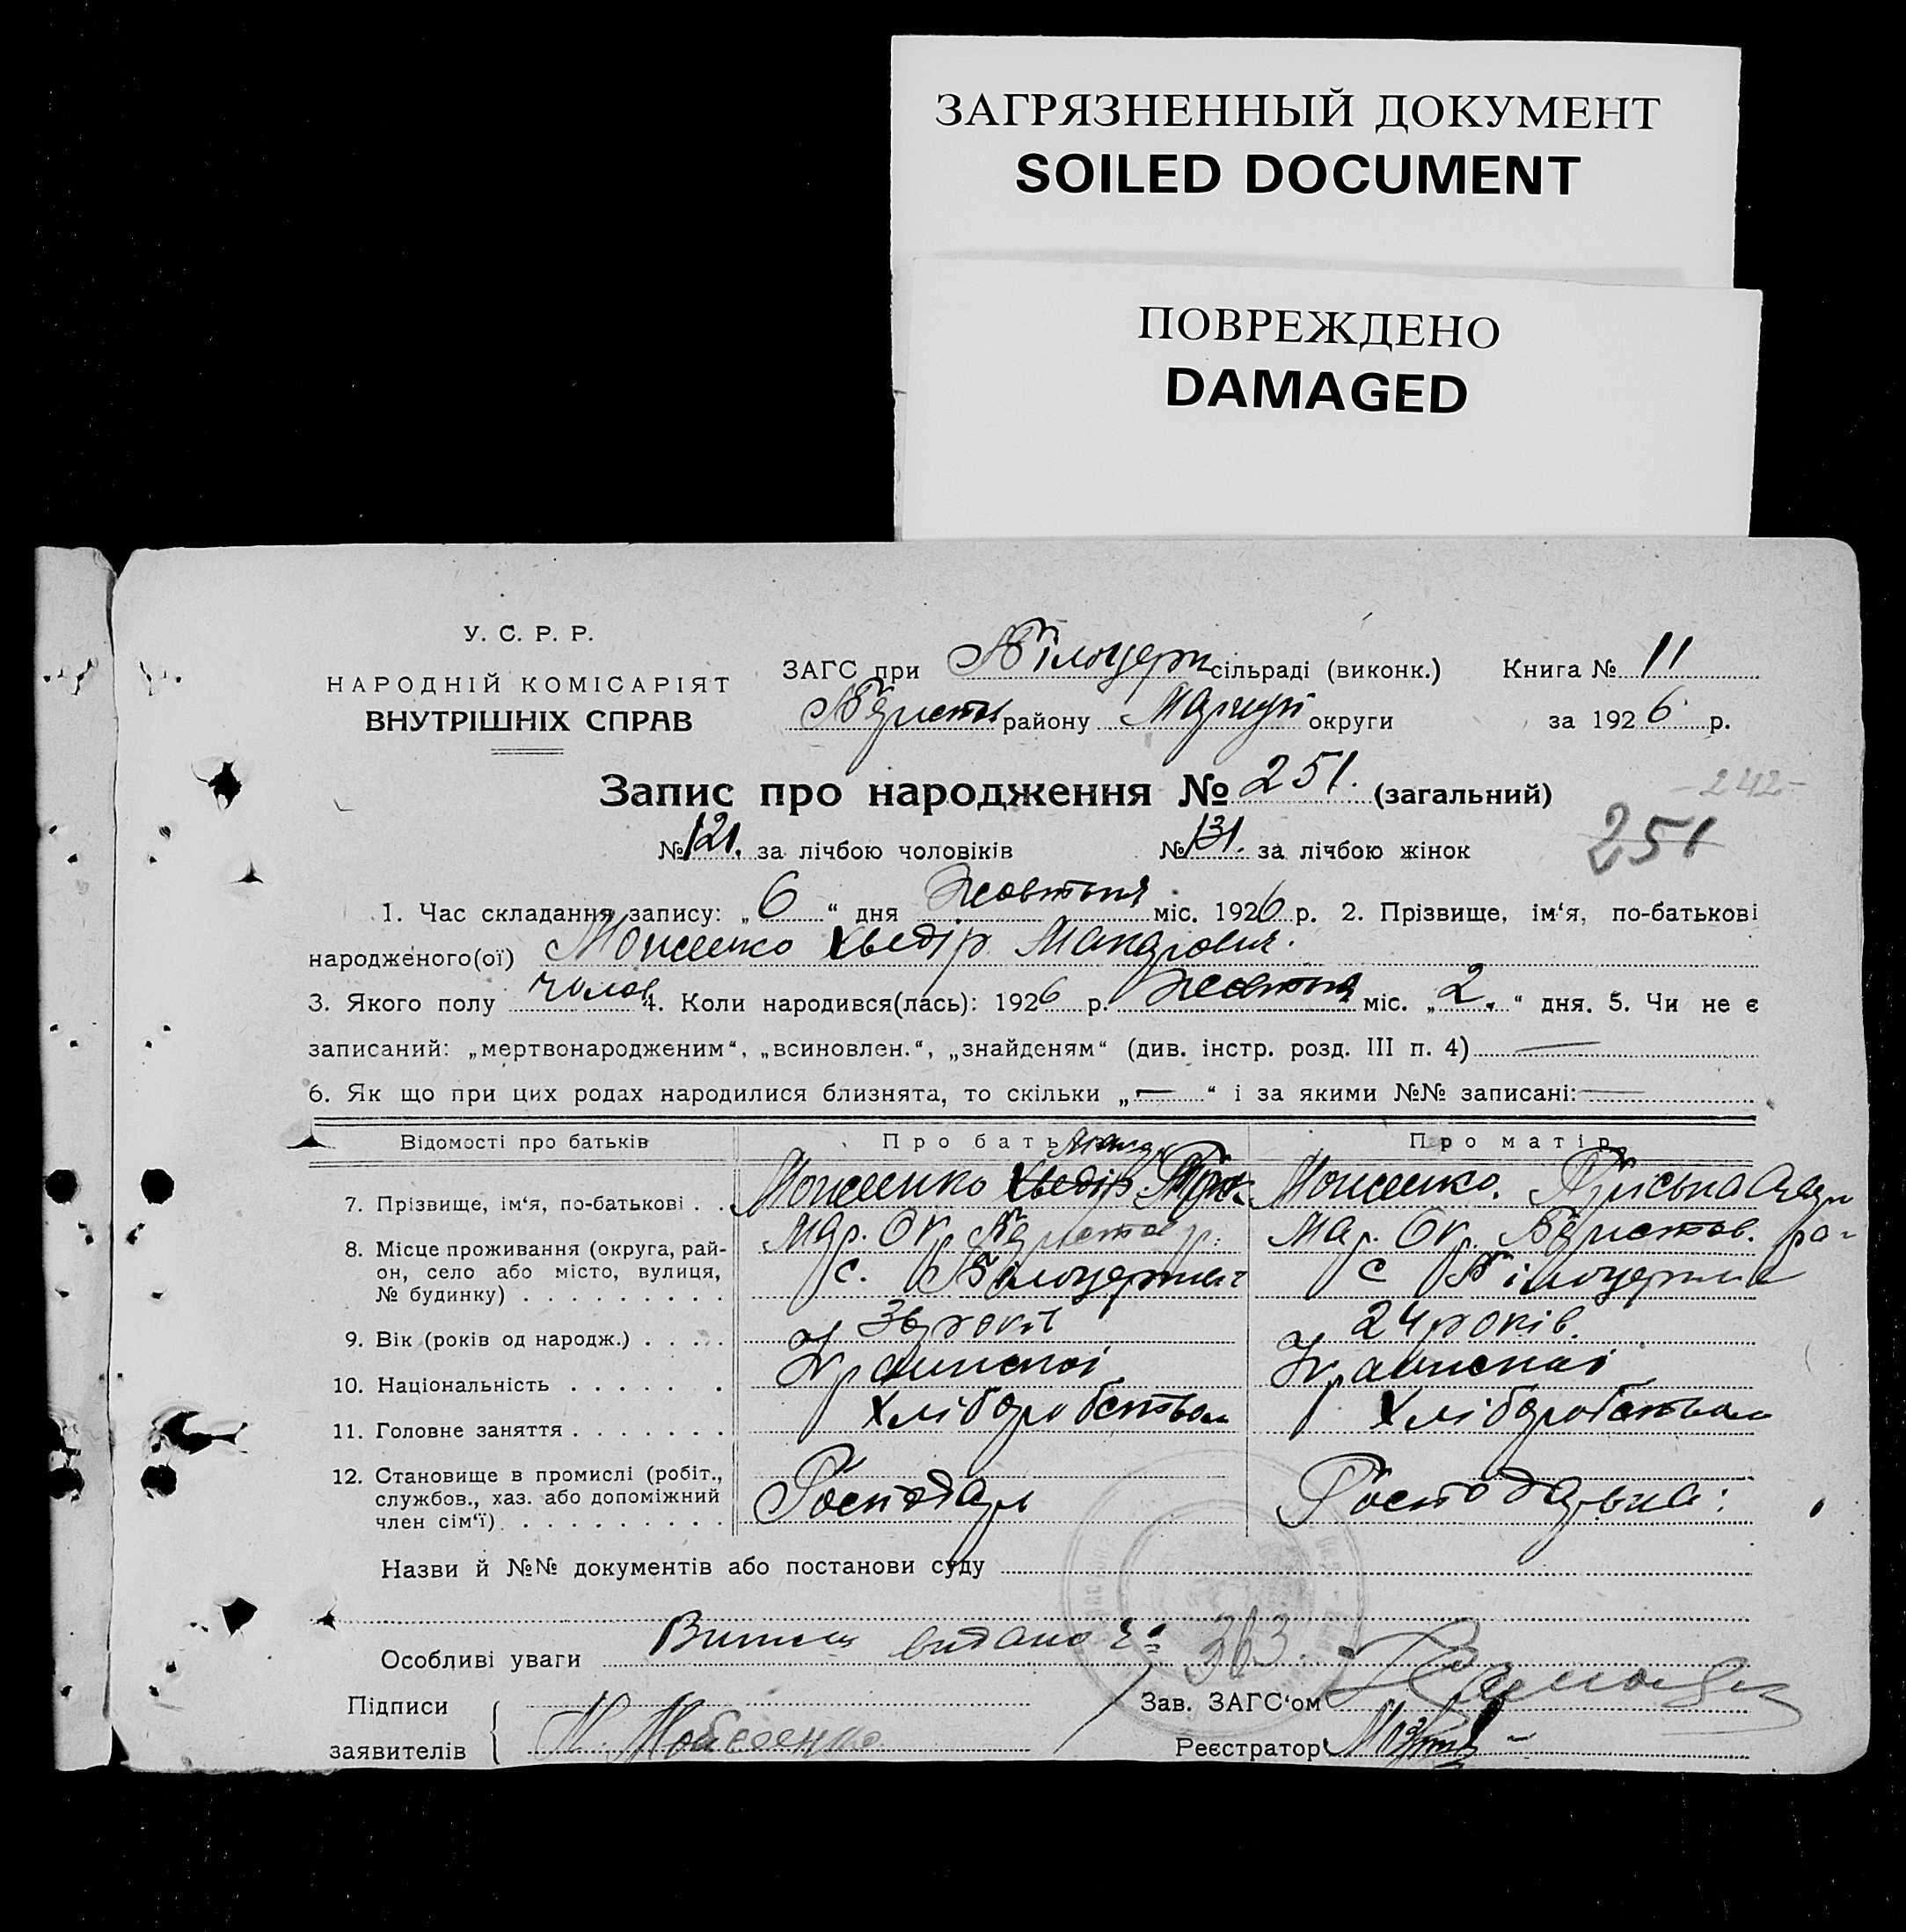 ЗАГРЯЗНЕННЫЙ ДОКУМЕНТ
SOILED DOCUMENT
ПОВРЕЖДЕНО
DAMAGED
У. С. Р. Р.
НАРОДНІЙ КОМІСАРІЯТ
ВНУТРІШНІХ СПРАВ
ЗАГС при Білоцерк сільраді (виконк.) Книга № 11
району округи за 1926 р.
Запис про народження № 251. (загальний)
242
№ 121. за лічбою чоловіків № 131. за лічбою жінок
251
1. Час складання запису: „6“ дня Жовтня міс. 1926 р. 2. Прізвище, ім‘я, по-батькові
народженого(ої) Хведір
3. Якого полу чолов 4. Коли народився(лась): 1926 р. Жовтня міс. „2.“ дня. 5. Чи не є
записаний: „мертвонародженим“, „всиновлен.“, „знайденям“ (див. інстр. розд. III п. 4) —
6. Як що при цих родах народилися близнята, то скільки „—“ і за якими №№ записані: —
Відомості про батьків Про батька Про матір
7. Прізвище, ім‘я, по-батькові . . Хведір
8. Місце проживання (округа, рай- Ок. Ок.
он, село або місто, вулиця, с. с
№ будинку) . . . . . . . . .
9. Вік (років од народж.) . . . . . років 24 років.
10. Національність . . . . . . .
11. Головне заняття . . . . . . . Хліборобством Хліборобством
12. Становище в промислі (робіт.,
службов., хаз. або допоміжний Господарь Господарька
член сім‘ї) . . . . . . . . .
Назви й №№ документів або постанови суду
Особливі уваги видано 363.
Підписи Зав. ЗАГС‘ом
заявителів Реєстратор